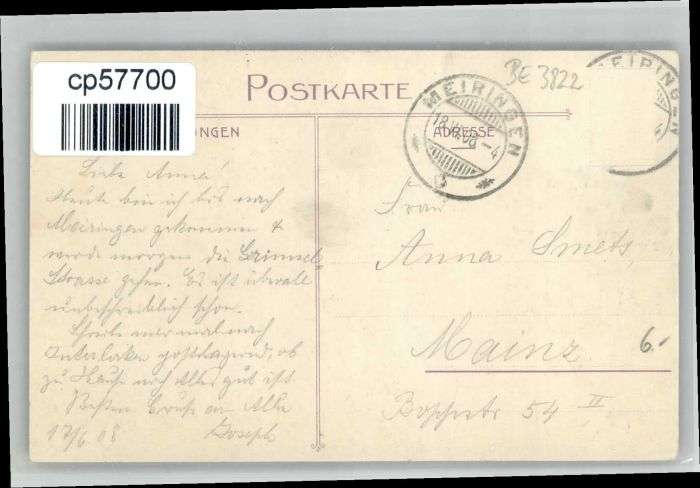 cp57700
POSTKARTE
BE 3822
MEIRINGEN
18.VI.08 – 4
MEIRINGEN
ADRESSE
Liebe Anna!
Heute bin ich bis nach
Meiringen gekommen &
werde morgen die Grimsel-
Strasse gehen. Es ist überall
unbeschreiblich schön.
Schreibe mir mal nach
Interlaken postlagernd, ob
zu Hause noch Alles gut ist.
Besten Gruß an Alle
17/6 08 Joseph
Frau
Anna Smets
Mainz
54 II
6.-